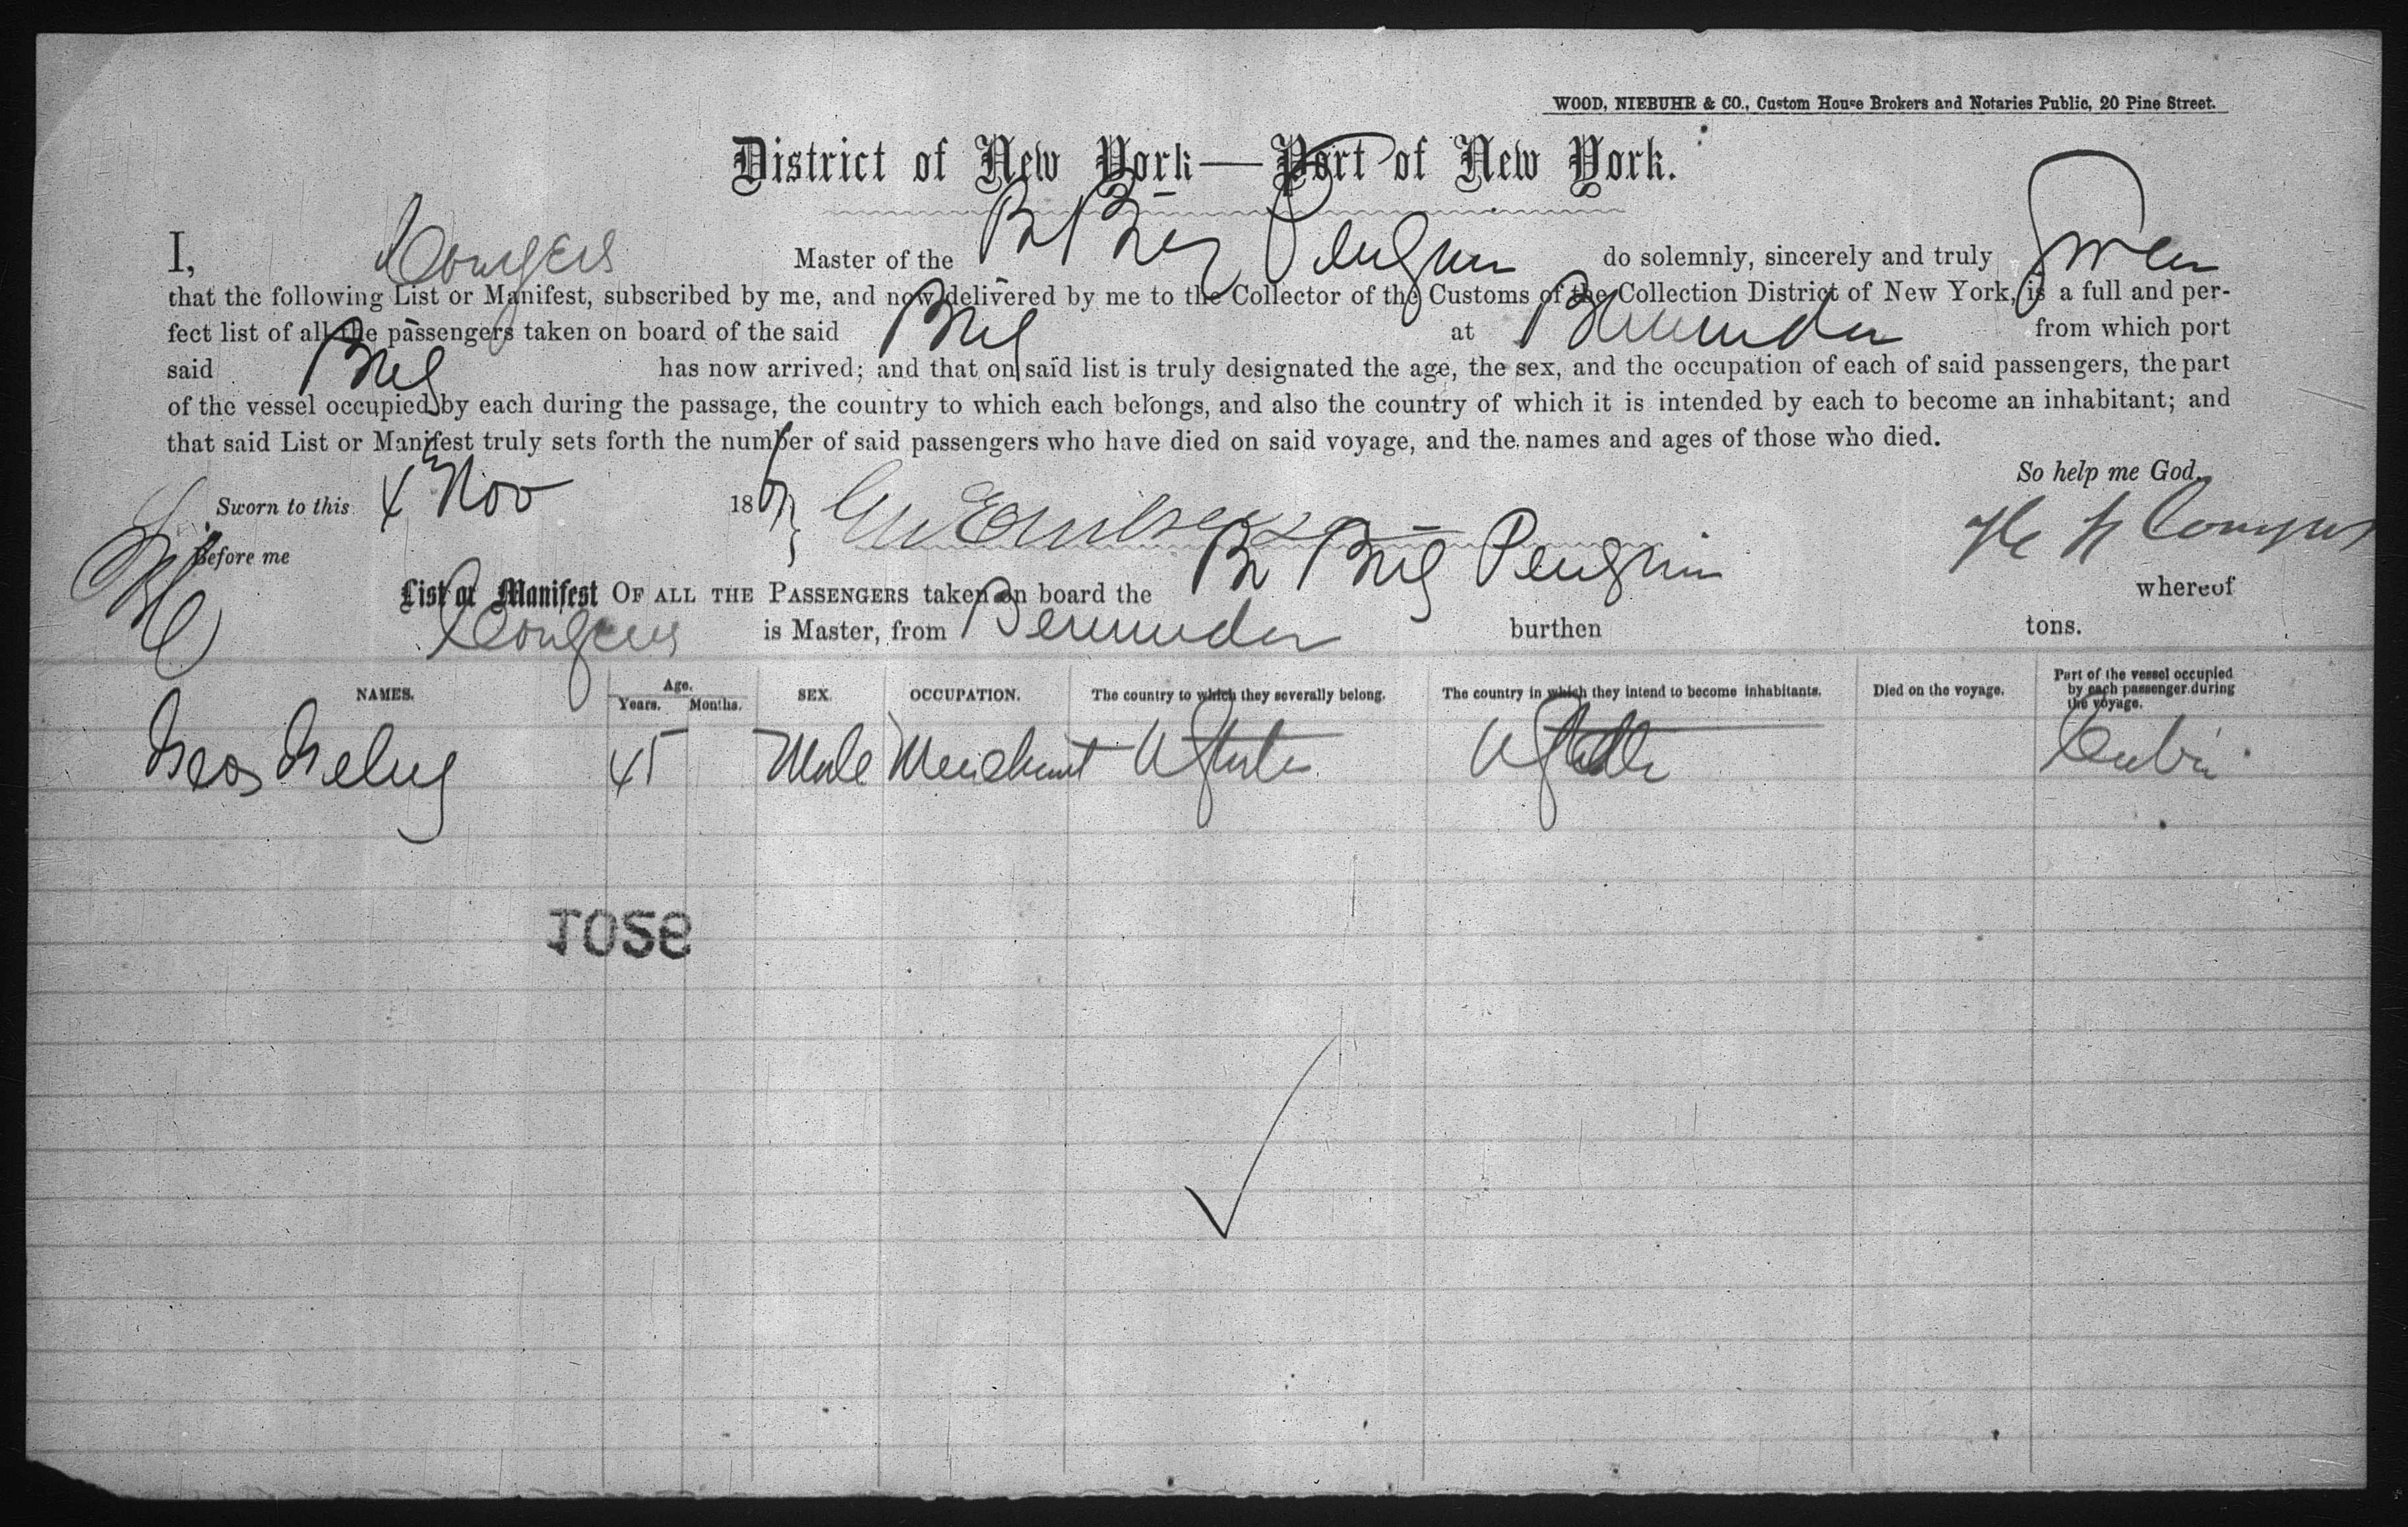 WOOD, NIEBUHR & CO., Custom House Brokers and Notaries Public, 20 Pine Street.
District of New York—Port of New York.
I, Conyers Master of the Br Brig Penguin do solemnly, sincerely and truly Swear
that the following List or Manifest, subscribed by me, and now delivered by me to the Collector of the Customs of the Collection District of New York, is a full and per-
fect list of all the passengers taken on board of the said Brig at Bermuda from which port
said Brig has now arrived; and that on said list is truly designated the age, the sex, and the occupation of each of said passengers, the part
of the vessel occupied by each during the passage, the country to which each belongs, and also the country of which it is intended by each to become an inhabitant; and
that said List or Manifest truly sets forth the number of said passengers who have died on said voyage, and the names and ages of those who died.
So help me God.
Sworn to this 4th Nov 1867
Before me
Conyers
List or Manifest OF ALL THE PASSENGERS taken on board the Br Brig Penguin whereof
Conyers is Master, from Bermuda burthen tons.
NAMES. Age. Years. Months. SEX. OCCUPATION. The country to which they severally belong. The country in which they intend to become inhabitants. Died on the voyage. Part of the vessel occupied by each passenger during the voyage.
45 Male Merchant U States U States Cabin
1058